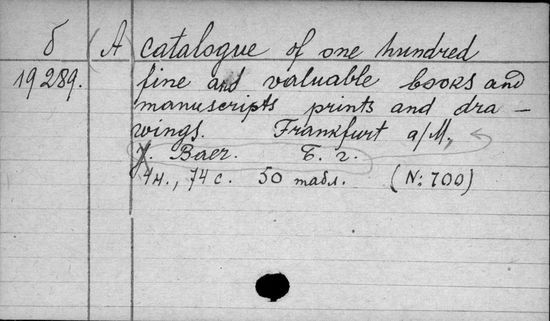 б (A) catalogue of one hundred
19289. fine and valuable books and
manuscripts prints and dra-
wings. Frankfurt a/M,
J. Baer. Б. г.
4н., 74 с. 50 табл. (N: 700)